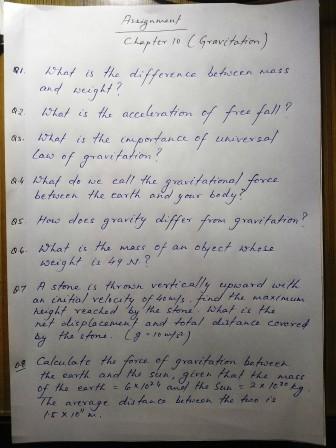 Assignment
Chapter 10 (Gravitation)
Q1. What is the difference between mass
and weight?
Q2. What is the acceleration of free fall?
Q3. What is the importance of universal
law of gravitation?
Q.4 What do we call the gravitational force
between the earth and your body?
Q5 How does gravity differ from gravitation?
Q6. What is the mass of an object whose
weight is 49 N?
Q7 A stone is thrown vertically upward with
an initial velocity of 40 m/s. find the maximum
height reached by the stone. What is the
net displacement and total distance covered
by the stone. (g = 10 m/s²)
Q8 Calculate the force of gravitation between
the earth and the sun, given that the mass
of the earth = 6×10²⁴ and the Sun = 2×10³⁰ kg
The average distance between the two is
1.5 × 10¹¹ m.